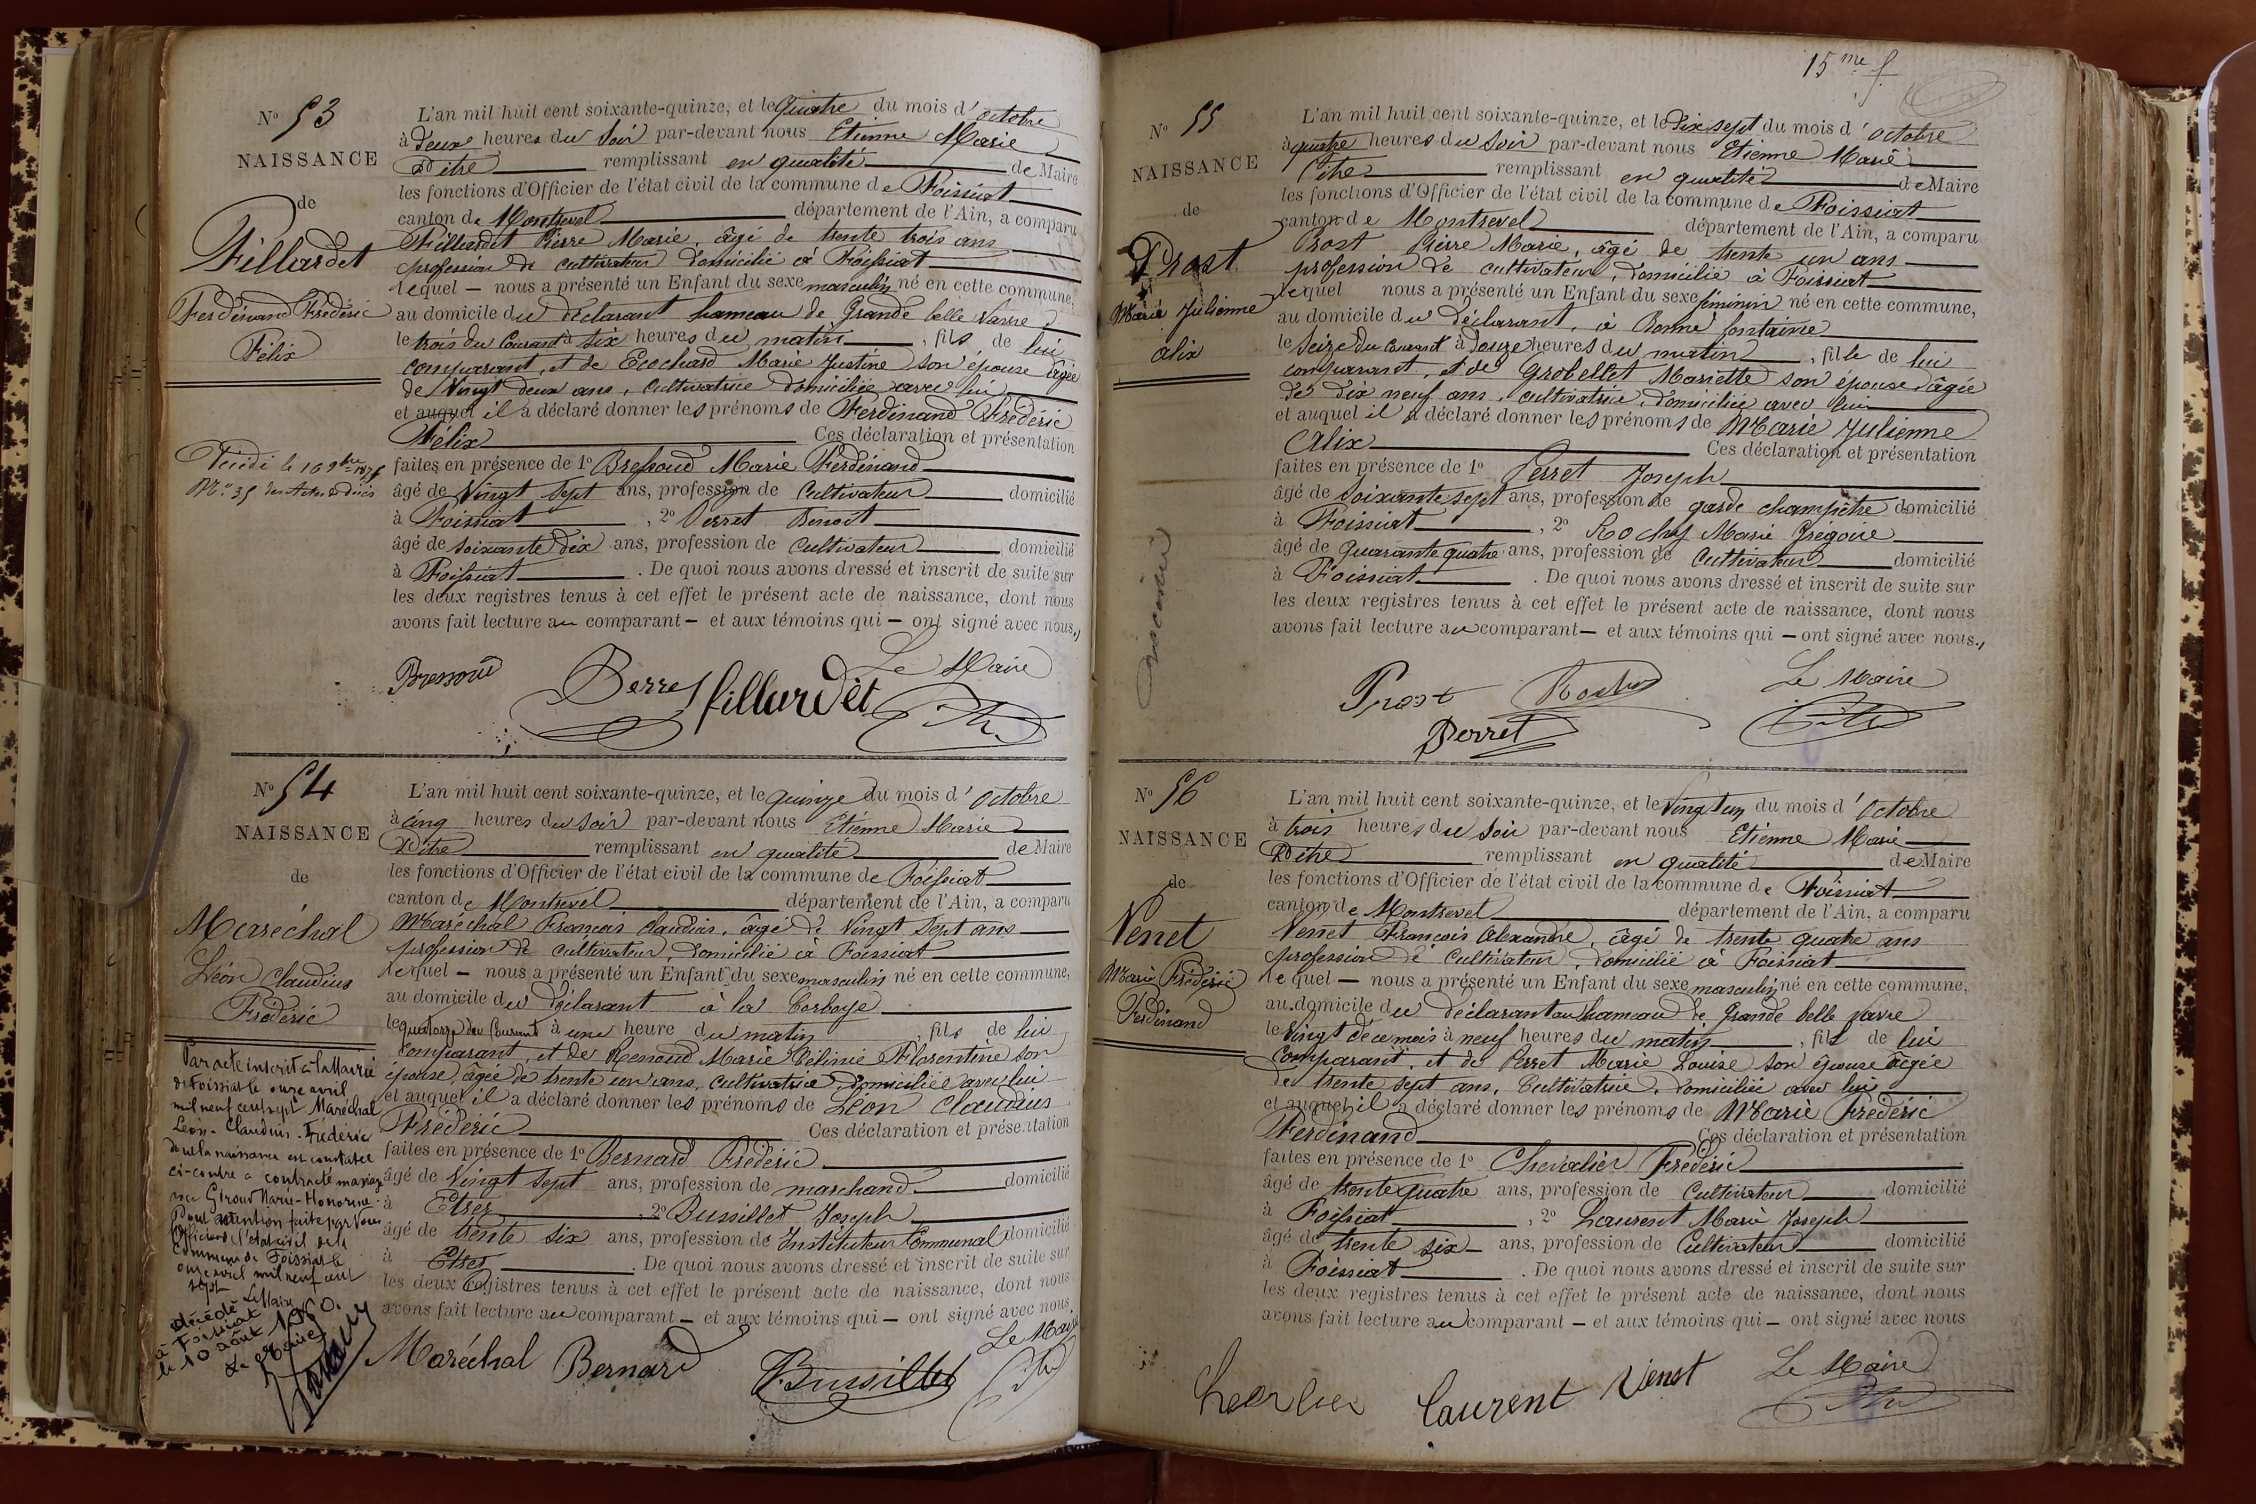 N° 53
NAISSANCE
de
Fillardet
Ferdinand Frédéric
Félix
Décédé le 16 9bre 1875
N° 35 des Actes de décès
L'an mil huit cent soixante-quinze, et le Quatre du mois d'octobre
à deux heures du soir par-devant nous Etienne Marie
Pithe remplissant en qualité de Maire
les fonctions d'Officier de l'état civil de la commune de Foissiat
canton de Montrevel département de l'Ain, a comparu
Fillardet Pierre Marie, âgé de trente trois ans
profession de cultivateur domicilié à Foissiat
lequel — nous a présenté un Enfant du sexe masculin né en cette commune,
au domicile du déclarant hameau de Grande belle vavre
le trois du courant à six heures du matin, fils de lui
comparant, et de Ecochard Marie Justine son épouse âgée
de Vingt deux ans, cultivatrice domiciliée avec lui
et auquel il a déclaré donner les prénoms de Ferdinand Frédéric
Félix Ces déclaration et présentation
faites en présence de 1° Bressoud Marie Ferdinand
âgé de Vingt sept ans, profession de Cultivateur domicilié
à Foissiat, 2° Perret Benoit
âgé de soixante dix ans, profession de cultivateur domicilié
à Foissiat. De quoi nous avons dressé et inscrit de suite sur
les deux registres tenus à cet effet le présent acte de naissance, dont nous
avons fait lecture au comparant — et aux témoins qui — ont signé avec nous.
Le Maire
Bressoud Perret fillardèt
N° 54
NAISSANCE
de
Maréchal
Léon Claudius
Frédéric
Par acte inscrit à la Mairie
de Foissiat le onze avril
mil neuf cent sept Maréchal
Léon-Claudius-Frédéric
dont la naissance est constatée
ci-contre a contracté mariage
avec Giroud Marie-Honorine.
Pour mention faite par Nous
Officier de l'état civil de la
Commune de Foissiat le
onze avril mil neuf cent
sept
Le Maire
décédé
à Foissiat
le 10 août 1960.
Le Maire
L'an mil huit cent soixante-quinze, et le quinze du mois d'octobre
à cinq heures du soir par-devant nous Etienne Marie
Pithe remplissant en qualité de Maire
les fonctions d'Officier de l'état civil de la commune de Foissiat
canton de Montrevel département de l'Ain, a comparu
Maréchal François Claudius, âgé de Vingt Sept ans
profession de cultivateur, domicilié à Foissiat
lequel — nous a présenté un Enfant du sexe masculin né en cette commune,
au domicile du déclarant à la Corbaye
le quatorze du Courant à une heure du matin, fils de lui
comparant, et de Renoud Marie Célinie Florentine son
épouse, âgée de trente un ans, cultivatrice, domiciliée avec lui
et auquel il a déclaré donner les prénoms de Léon Claudius
Frédéric Ces déclaration et présentation
faites en présence de 1° Bernard Frédéric
âgé de Vingt sept ans, profession de marchand domicilié
à Etrez, 2° Bussillet Joseph
âgé de trente six ans, profession de Instituteur Communal domicilié
à Etrez. De quoi nous avons dressé et inscrit de suite sur
les deux registres tenus à cet effet le présent acte de naissance, dont nous
avons fait lecture au comparant — et aux témoins qui — ont signé avec nous
Le Maire
Maréchal Bernard Bussillet
15me f
N° 55
NAISSANCE
de
Prost
Marie Julienne
Alix
L'an mil huit cent soixante-quinze, et le dix sept du mois d'octobre
à quatre heures du soir par-devant nous Etienne Marie
Pithe remplissant en qualité de Maire
les fonctions d'Officier de l'état civil de la commune de Foissiat
canton de Montrevel département de l'Ain, a comparu
Prost Pierre Marie, âgé de trente un ans
profession de cultivateur, domicilié à Foissiat
lequel nous a présenté un Enfant du sexe féminin né en cette commune,
au domicile du déclarant, à Bonne fontaine
le Seize du courant à douze heures du matin, fille de lui
comparant, et de Grobellet Mariette son épouse, âgée
de dix neuf ans, cultivatrice, domiciliée avec lui
et auquel il a déclaré donner les prénoms de Marie Julienne
Alix Ces déclaration et présentation
faites en présence de 1° Perret Joseph
âgé de soixante sept ans, profession de garde champêtre domicilié
à Foissiat, 2° Rochy Marie Grégoire
âgé de Quarante quatre ans, profession de Cultivateur domicilié
à Foissiat. De quoi nous avons dressé et inscrit de suite sur
les deux registres tenus à cet effet le présent acte de naissance, dont nous
avons fait lecture au comparant — et aux témoins qui — ont signé avec nous.
Le Maire
Prost Rochy
Perret
N° 56
NAISSANCE
de
Venet
Marie Frédéric
Ferdinand
L'an mil huit cent soixante-quinze, et le Vingt un du mois d'octobre
à trois heures du soir par-devant nous Etienne Marie
Pithe remplissant en qualité de Maire
les fonctions d'Officier de l'état civil de la commune de Foissiat
canton de Montrevel département de l'Ain, a comparu
Venet François Alexandre, âgé de trente quatre ans
profession de Cultivateur, domicilié à Foissiat
lequel — nous a présenté un Enfant du sexe masculin né en cette commune,
au domicile du déclarant au hameau de Grande belle vavre
le Vingt de ce mois à neuf heures du matin, fils de lui
comparant, et de Perret Marie Louise son épouse âgée
de trente sept ans, Cultivatrice, domiciliée avec lui
et auquel il a déclaré donner les prénoms de Marie Frédéric
Ferdinand Ces déclaration et présentation
faites en présence de 1° Chevalier Frédéric
âgé de trente quatre ans, profession de Cultivateur domicilié
à Foissiat, 2° Laurent Marie Joseph
âgé de trente six ans, profession de Cultivateur domicilié
à Foissiat. De quoi nous avons dressé et inscrit de suite sur
les deux registres tenus à cet effet le présent acte de naissance, dont nous
avons fait lecture au comparant — et aux témoins qui — ont signé avec nous
Le Maire
Laurent Venet